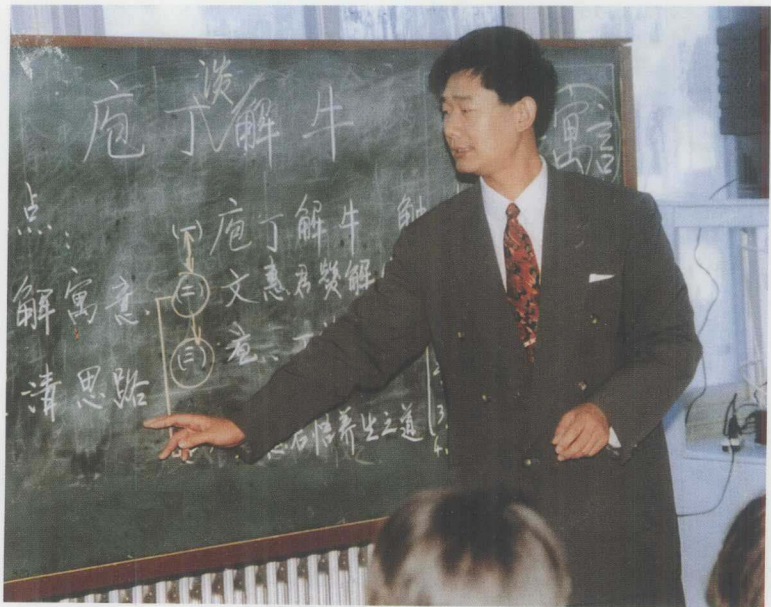 谈
庖丁解牛
寓言
点：
解寓意
清思路
(一) 庖丁解牛
(二) 文惠君赞解
(三) 庖丁
君悟养生之道
3.
4.